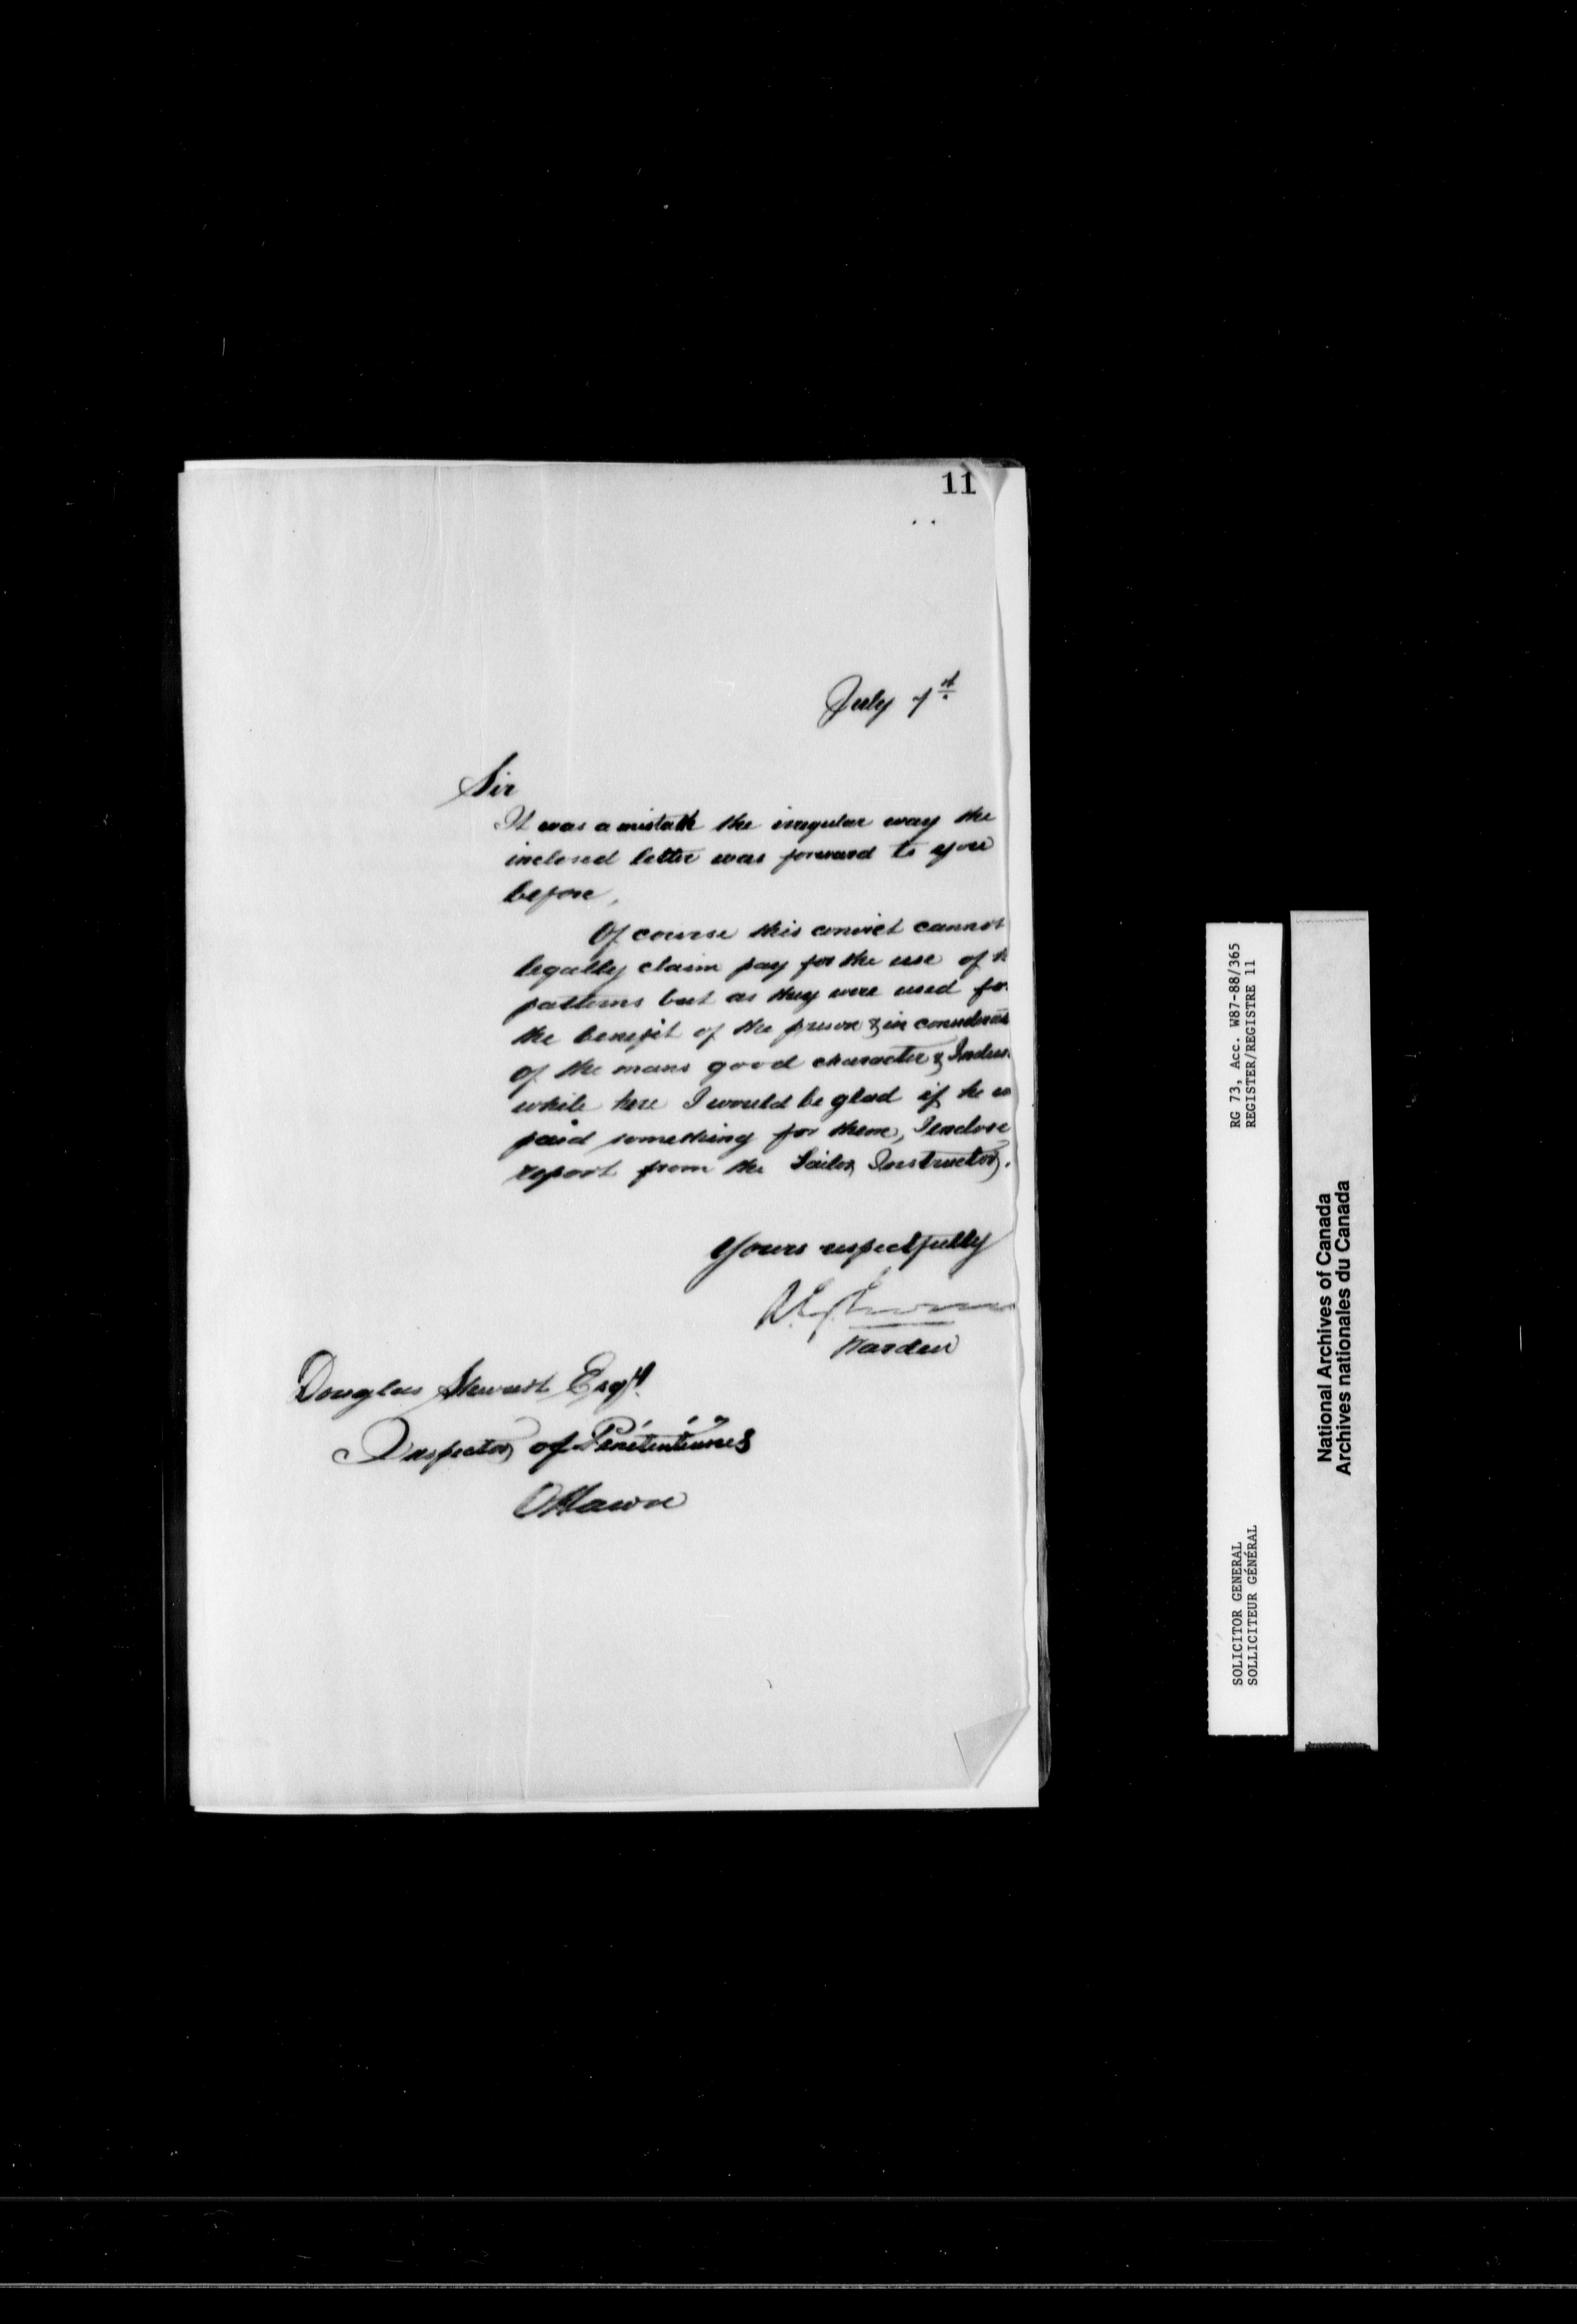 11
July 1st
Sir
It was a mistake the irregular way the
inclosed letter was forward to you
before,
Of course this convict cannot
legally claim pay for the use of
patterns but as they were used for
the benefit of the prison & in considerat
of the mans good character & Indus
while here I would be glad if he
paid something for them, I enclose
report from the Tailor Instructor.
Yours respectfully
Warden
Douglas Stewart Esqr.
Inspector of Penitentiaries
Ottawa
RG 73, Acc. W87-88/365
REGISTER/REGISTRE 11
SOLICITOR GENERAL
SOLLICITEUR GÉNÉRAL
National Archives of Canada
Archives nationales du Canada